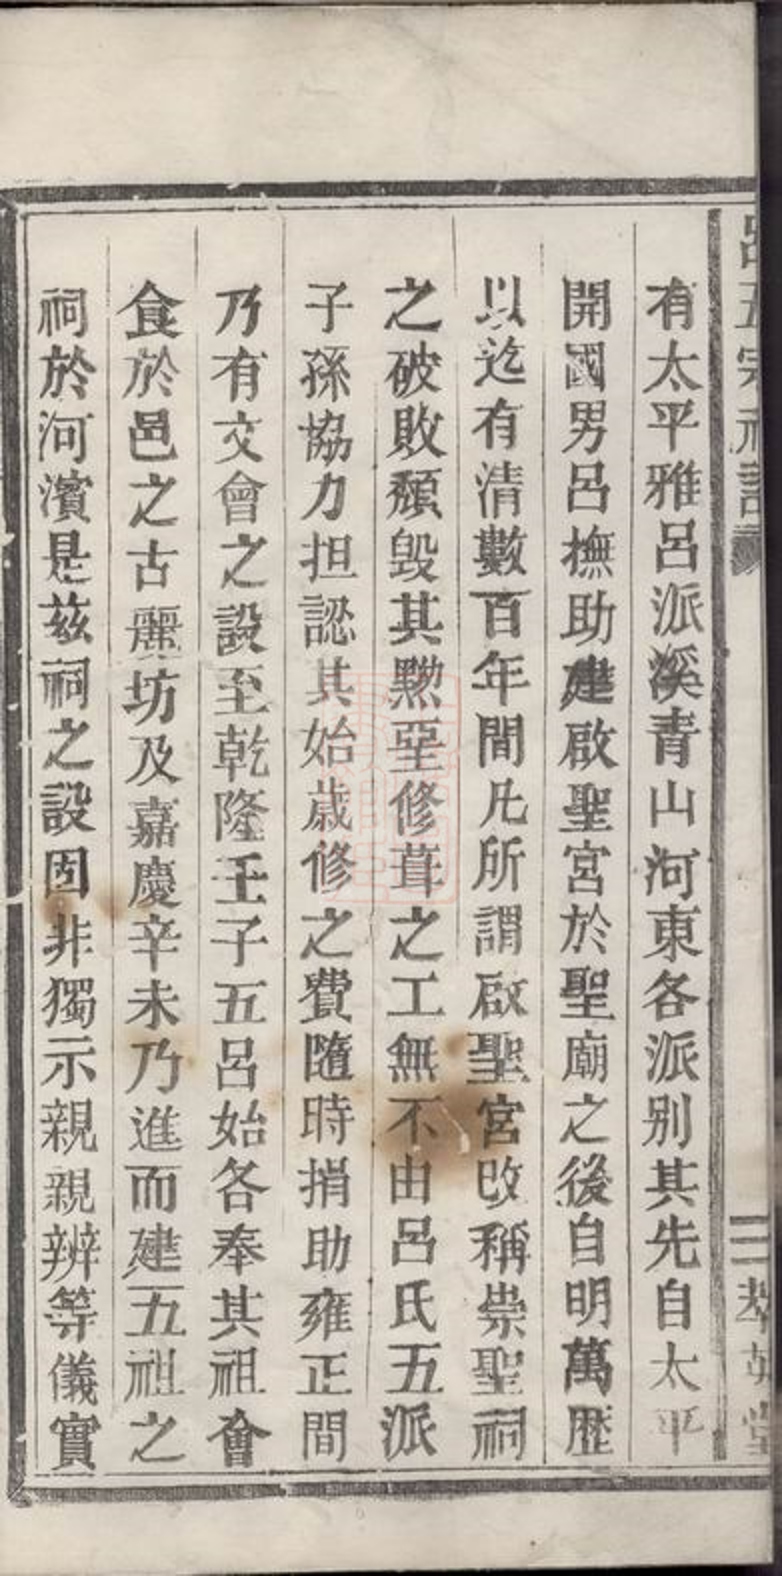 呂五宗祠記
三
有太平雅呂派溪青山河東各派别其先自太平
開國男呂撫助建啟聖宮於聖廟之後自明萬歷
以迄有清數百年間凡所謂啟聖宮改稱崇聖祠
之破敗頹毀其黝堊修葺之工無不由呂氏五派
子孫協力担認其始歳修之費隨時捐助雍正間
乃有文會之設至乾隆壬子五呂始各奉其祖會
食於邑之古麗坊及嘉慶辛未乃進而建五祖之
祠於河濱是兹祠之設固非獨示親親辨等儀實